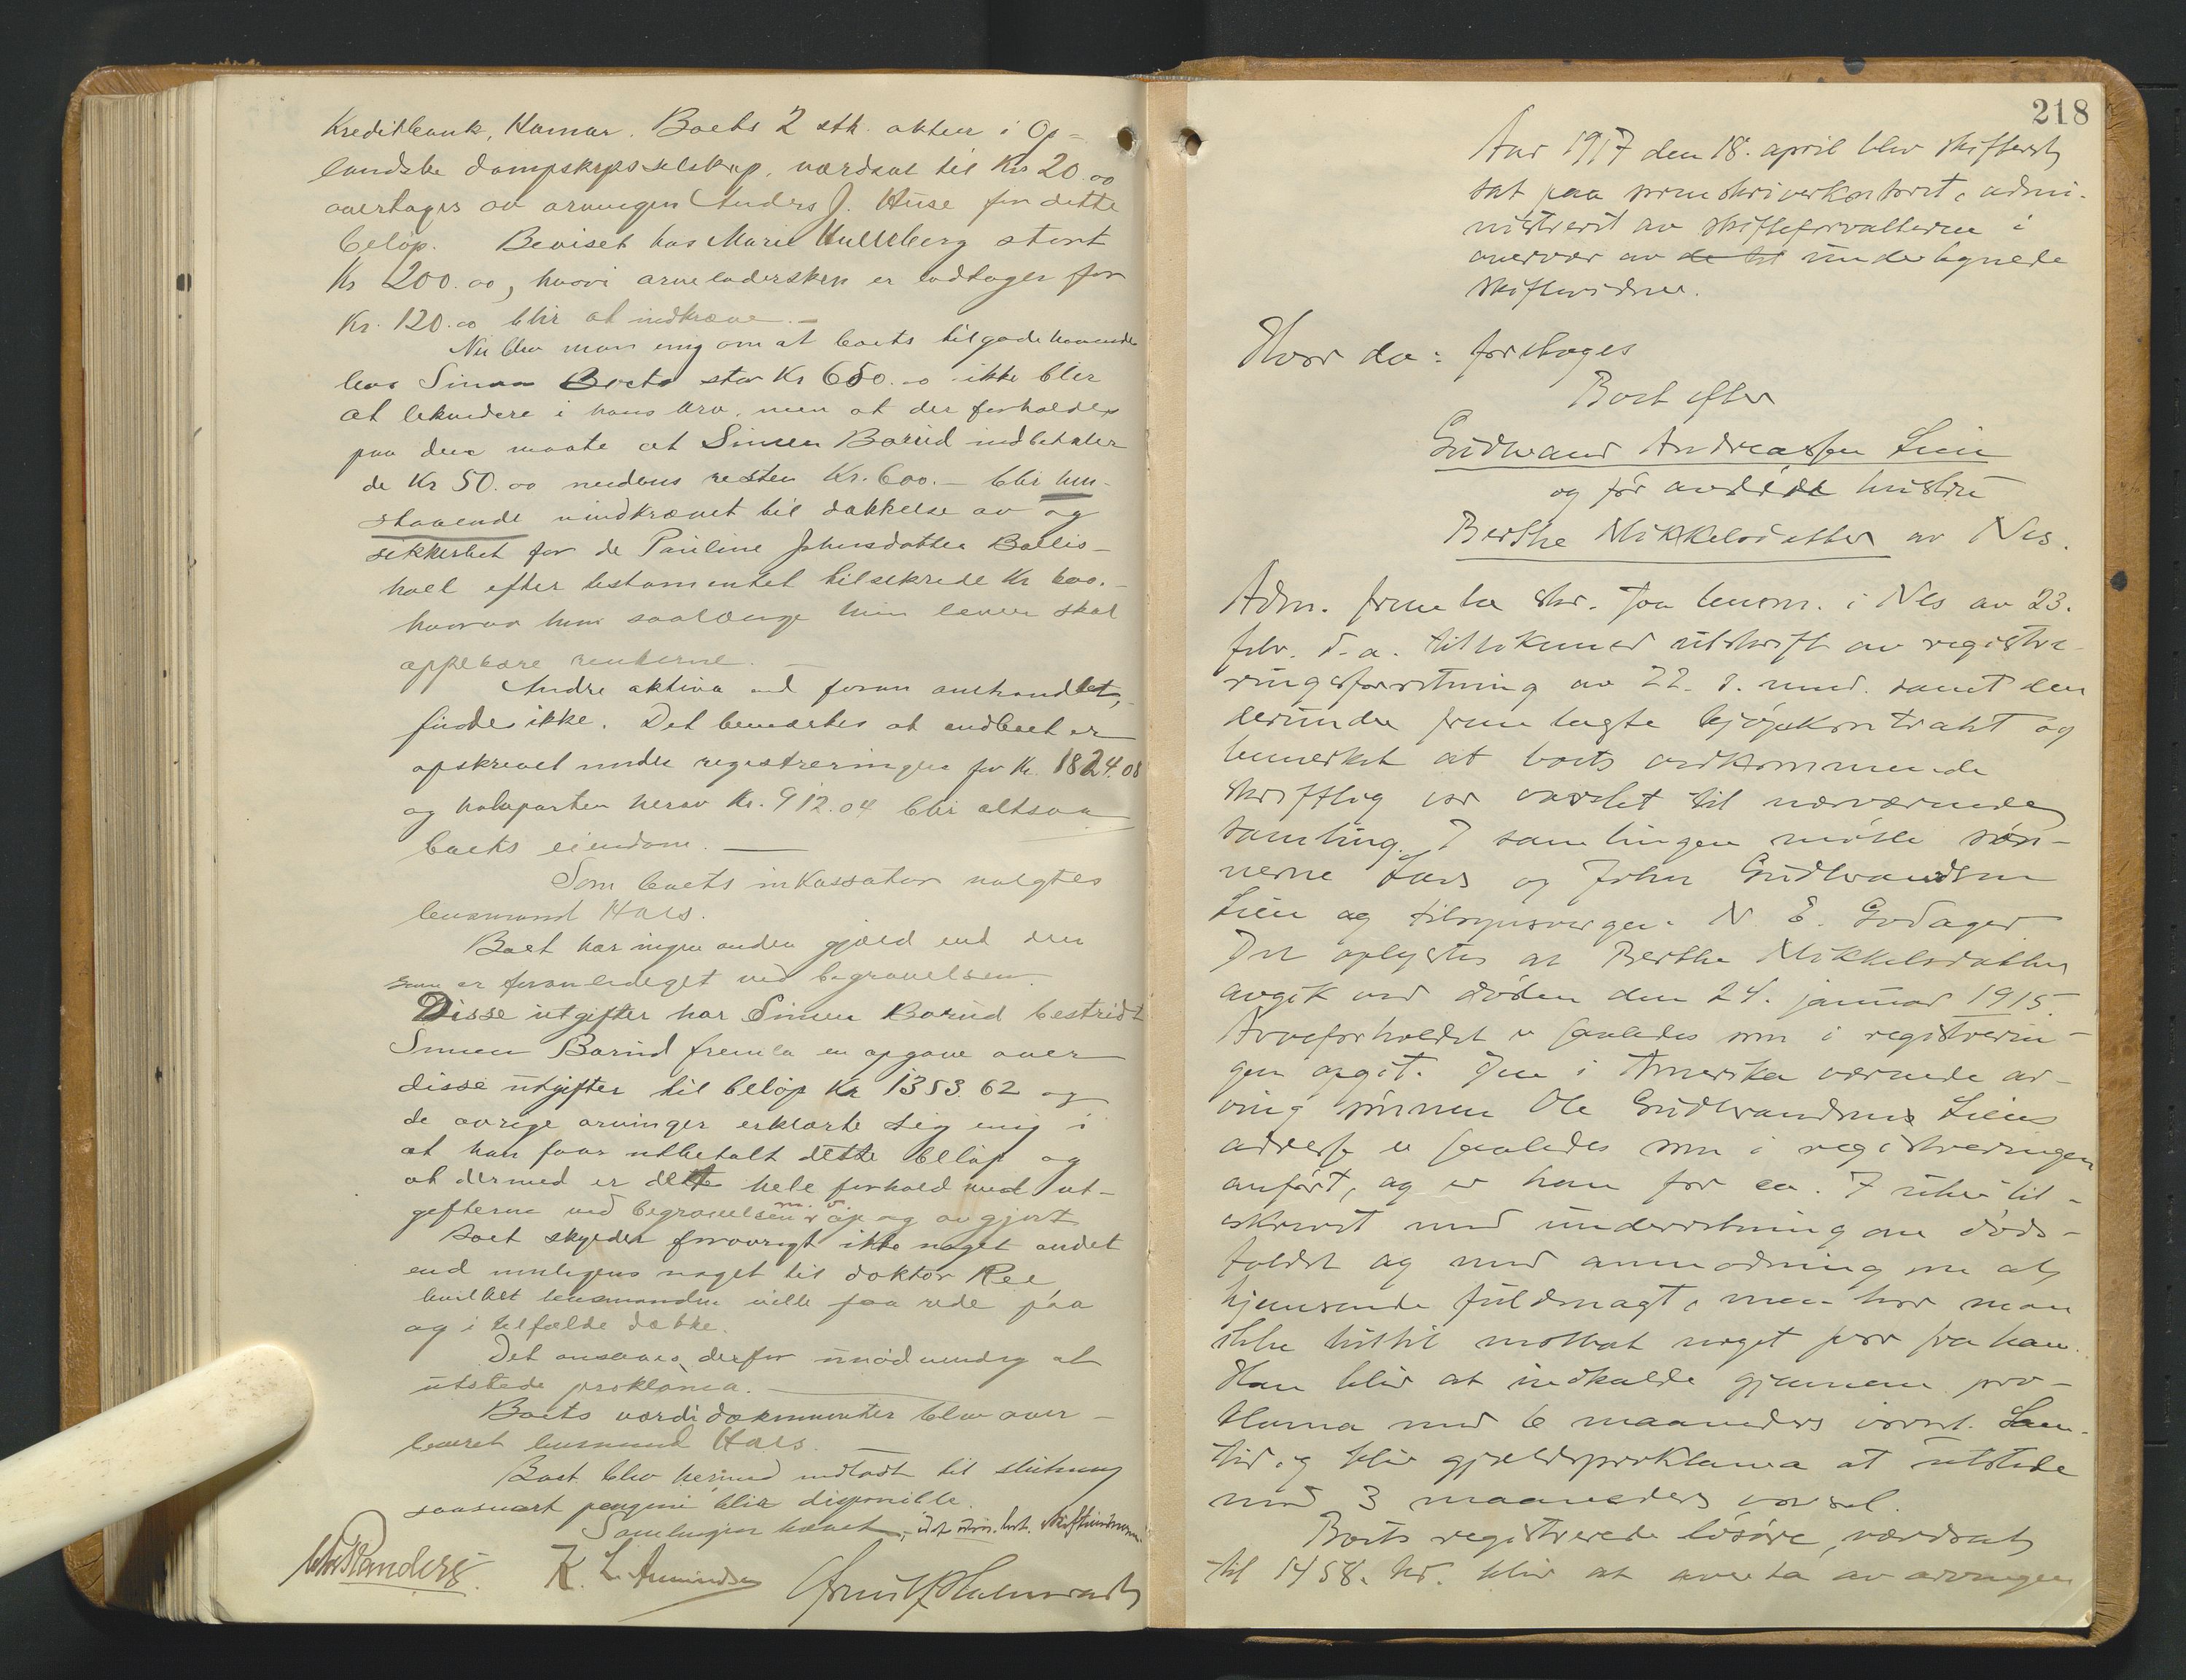 Kreditbank, Hamar. Boets 2 stk. aktier i Op-
landske dampskipsselskap, værdsat til Kr 20.00
overtages av arvingen Anders J. Huse for dette
beløp. Beviset hos Marie Hullberg stort
Kr 200.00, hvori arveladersken er lodtager for
Kr. 120.00 blir at indkræve. —
Nu blev man enig om at boets tilgodehavende
hos Simen Borud stor Kr 650.00 ikke blir
at likvidere i hans arv, men at der forholdes
paa den maate at Simen Borud indbetaler
de Kr 50.00 medens resten Kr. 600.— blir hen-
staaende uindkrævet til dækkelse av og
sikkerhet for de Pauline Johnsdatter Bollis-
hoel efter testamentet tilsikrede Kr 600.—
hvorav hun saalænge hun lever skal
oppebære renterne. —
Andre aktiva end foran omhandlet,
findes ikke. Det bemerkes at indboet er
opskrevet under registreringen for Kr. 1824.08
og halvparten herav Kr. 912.04 blir altsaa
boets eiendom. —
Som boets inkassator valgtes
lensmand Hals.
Boet har ingen anden gjæld end den
som er foranlediget ved begravelsen.
Disse utgifter har Simen Borud bestridt
Simen Borud fremla en opgave over
disse utgifter til beløp Kr 1353.62 og
de øvrige arvinger erklærte sig enig i
at han faar utbetalt dette beløp og
at dermed er dette hele forhold med ut-
gifterne ved begravelsen m. v. op og avgjort
Boet skylder forøvrigt ikke noget andet
end muligens noget til doktor Ree
hvilket lensmanden vilde faa rede paa
og i tilfælde dække.
Det ansaaes derfor unødvendig at
utstede proklama. —
Boets værdidokumenter blev over-
leveret lensmand Hals.
Boet blev hermed indladt til slutning
saasnart pengene blir disponible.
Samlingen hævet,
Randers. K. L. Amundsen
218
Aar 1917 den 18. april blev skifteret
sat paa sorenskriverkontoret, admi-
nistrert av skifteforvalteren i
overvær av de til undertegnede
skiftevidner.
Hvor da: foretoges
Boet efter
Gudbrand Andreassen Lien
og før avdøde hustru
Berthe Mikkelsdatter av Nes.
Adm. fremla skr. fra lensm. i Nes av 23.
febr. d. a. tillikemed utskrift av registre-
ringsforretning av 22. s. mnd. samt den
derunder fremlagte kjøpekontrakt og
bemerket at boets vedkommende
skriftlig var varslet til nærværende
samling. I samlingen møtte søn-
nerne Lars og John Gudbrandsen
Lien og tilsynsverge. N. E. Godager
Det oplystes at Berthe Mikkelsdatter
avgik ved døden den 24. januar 1915.
Arveforholdet er saaledes som i registrerin-
gen opgit. Den i Amerika værende ar-
ving sønnen Ole Gudbrandsens Liens
adresse er saaledes som i registreringen
anført, og er han for ca. 7 uker til-
skrevet med underretning om døds-
faldet og med anmodning om at
hjemsende fuldmagt, men har man
ikke hittil mottat noget svar fra ham.
Han blir at indkalde gjennem pro-
klama med 6 maaneders varsel. Sam-
tidig blir gjældsproklama at utstede
med 3 maaneders varsel.
Boets registrerede løsøre, værdsat
til 1458. kr. blir at overta av arvingen